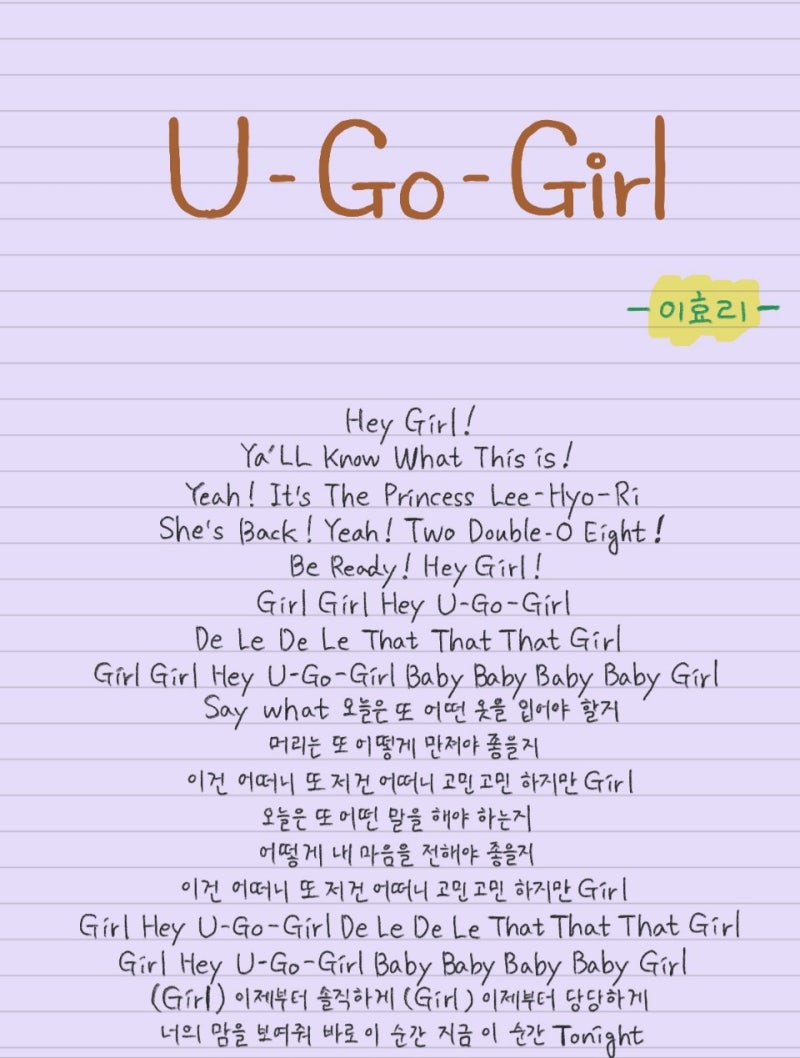 U-Go-Girl
- 이효리 -
Hey Girl!
Ya'LL Know What This is!
Yeah! It's The Princess Lee-Hyo-Ri
She's Back! Yeah! Two Double-O Eight!
Be Ready! Hey Girl!
Girl Girl Hey U-Go-Girl
De Le De Le That That That Girl
Girl Girl Hey U-Go-Girl Baby Baby Baby Baby Girl
Say what 오늘은 또 어떤 옷을 입어야 할지
머리는 또 어떻게 만져야 좋을지
이건 어떠니 또 저건 어떠니 고민고민 하지만 Girl
오늘은 또 어떤 말을 해야 하는지
어떻게 내 마음을 전해야 좋을지
이건 어떠니 또 저건 어떠니 고민고민 하지만 Girl
Girl Hey U-Go-Girl De Le De Le That That That Girl
Girl Hey U-Go-Girl Baby Baby Baby Baby Girl
(Girl) 이제부터 솔직하게 (Girl) 이제부터 당당하게
너의 맘을 보여줘 바로 이 순간 지금 이 순간 Tonight